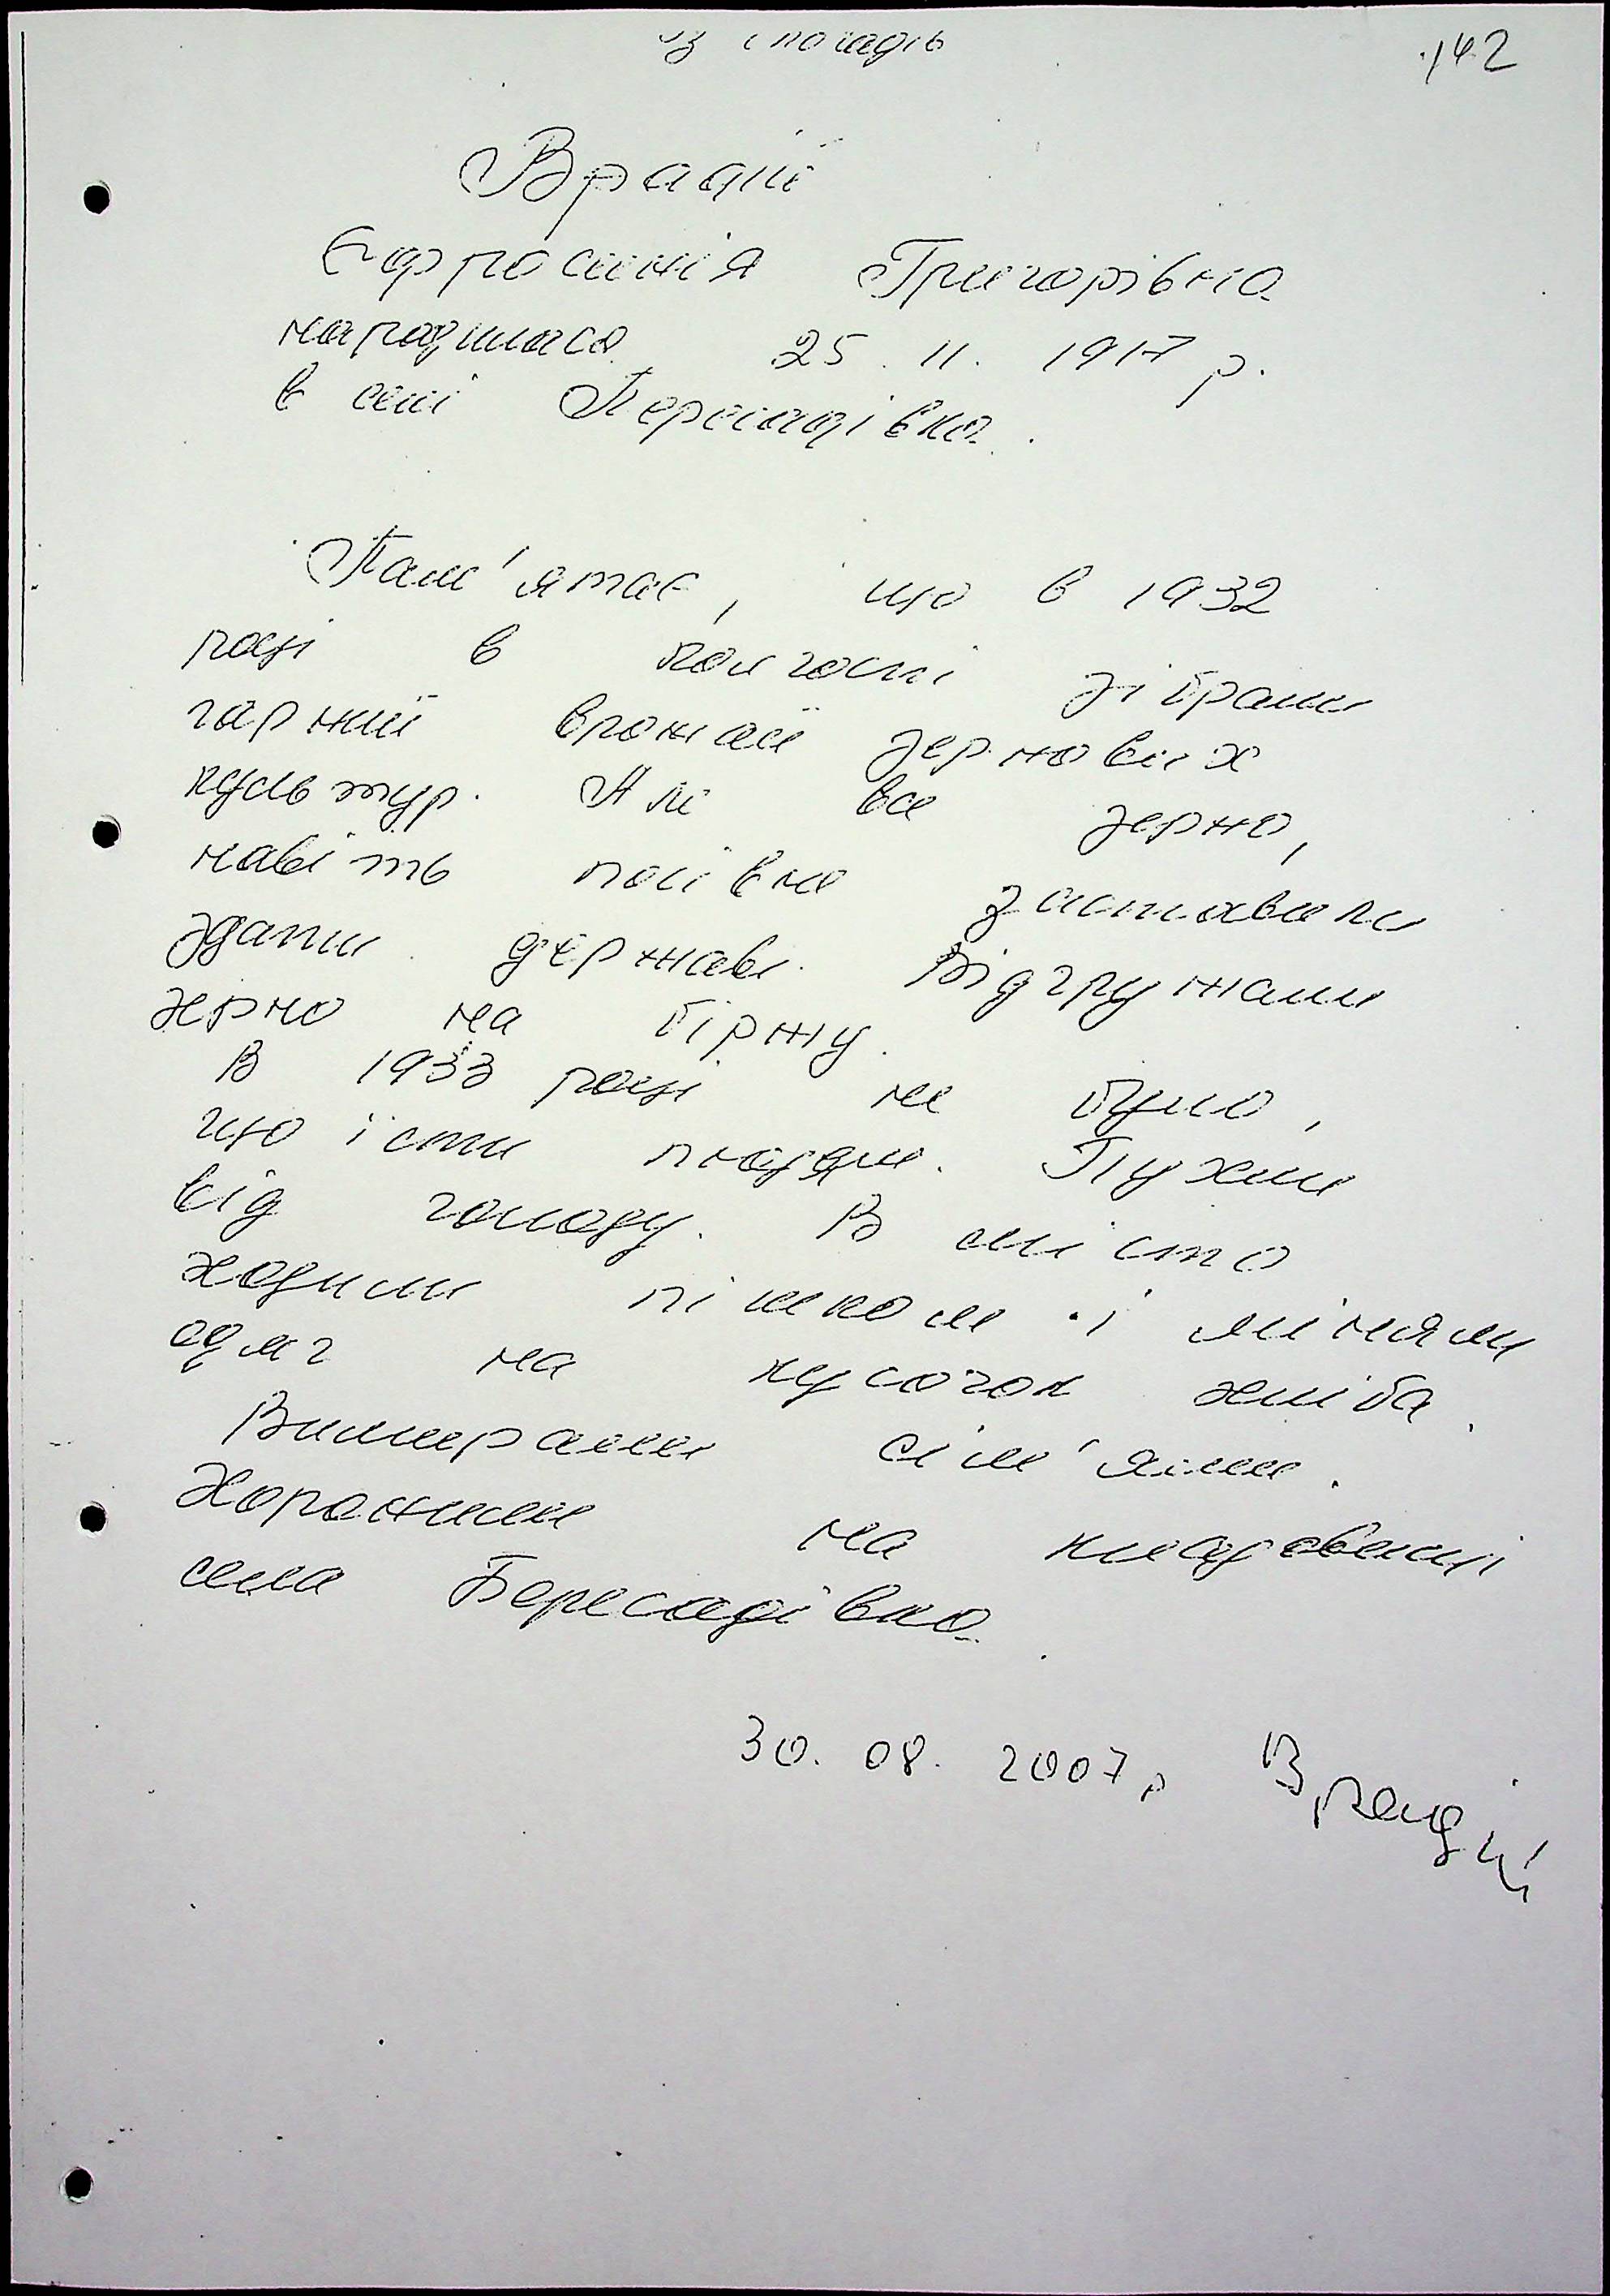 із спогадів
142
Врадій
Єфросинія Григорівна
народилася 25. 11. 1917 р.
в селі Пересадівка.
Пам'ятає, що в 1932
році в колгоспі зібрали
гарний врожай зернових
культур. Але все зерно,
навіть посівне заставили
здати державі. Відгружали
зерно на біржу.
В 1933 році не було,
що їсти людям. Пухли
від голоду. В місто
ходили пішком і міняли
одяг на кусочок хліба.
Вимирали сім'ями.
Хоронили на кладовищі
села Бересадівка.
30. 08. 2007 р Врадій